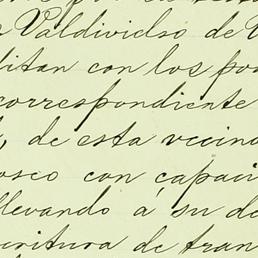 Valdivielso de
ditan con los
correspondiente
, de esta vecin
osco con capaci
llevando á su de
critura de tran